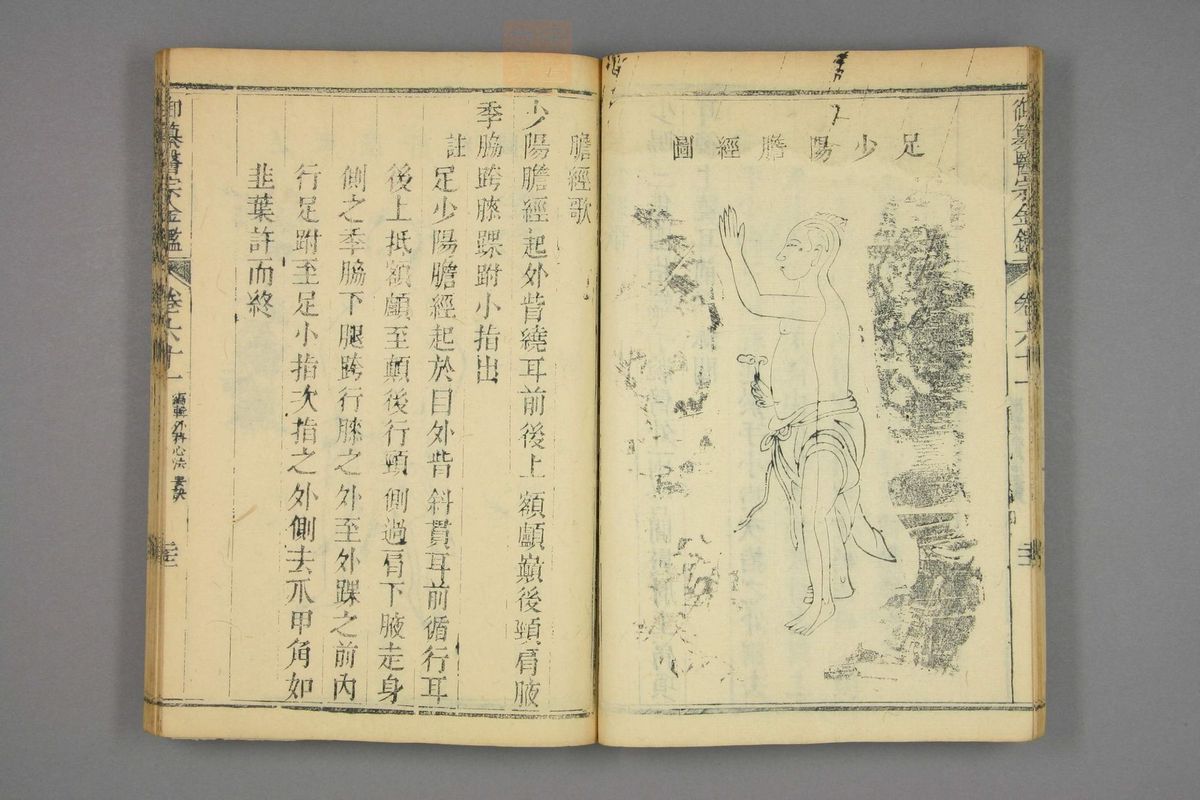 御纂醫宗金鑑
卷六十一
足少陽膽經圖
膽經歌
少陽膽經起外眥繞耳前後上額顱巔後頸肩腋
季脇跨膝踝跗小指出
註
足少陽膽經起於目外眥斜貫耳前循行耳
後上抵額顱至顛後行頸側過肩下腋走身
側之季脇下腿跨行膝之外至外踝之前內
行足跗至足小指次指之外側去爪甲角如
韭葉許而終
御纂醫宗金鑑
卷六十一
編輯外科心法要訣